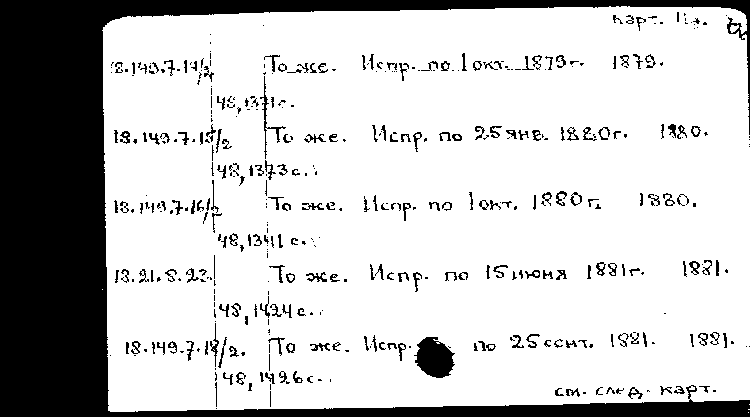 Карт. 11
18.149.7.14/2 То же. Испр. по 1 окт. 1879 г. 1879.
48, 1371 с.
18.149.7.15/2 То же. Испр. по 25 янв. 1880 г. 1880.
48, 1373 с.
18.149.7.16/2 То же. Испр. по 1 окт. 1880 г. 1880.
48, 1341 с.
18.21.8.23. То же. Испр. по 15 июня 1881 г. 1881.
48, 1424 с.
18.149.7.18/2. То же. Испр. по 25 сент. 1881. 1881.
48, 1426 с.
см. след. карт.